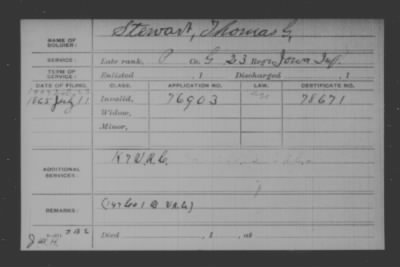 NAME OF SOLDIER: Stewart, Thomas G.
SERVICE: Late rank, P Co. G 23 Reg't Iowa Inf.
TERM OF SERVICE: Enlisted , 1 Discharged , 1
DATE OF FILING. CLASS. APPLICATION NO. LAW. CERTIFICATE NO.
1865 July 11 Invalid, 76903 78671
Widow,
Minor,
ADDITIONAL SERVICES: K 7 V.R.C.
REMARKS: (147 Co 1 B V.R.C)
Died , 1 , at